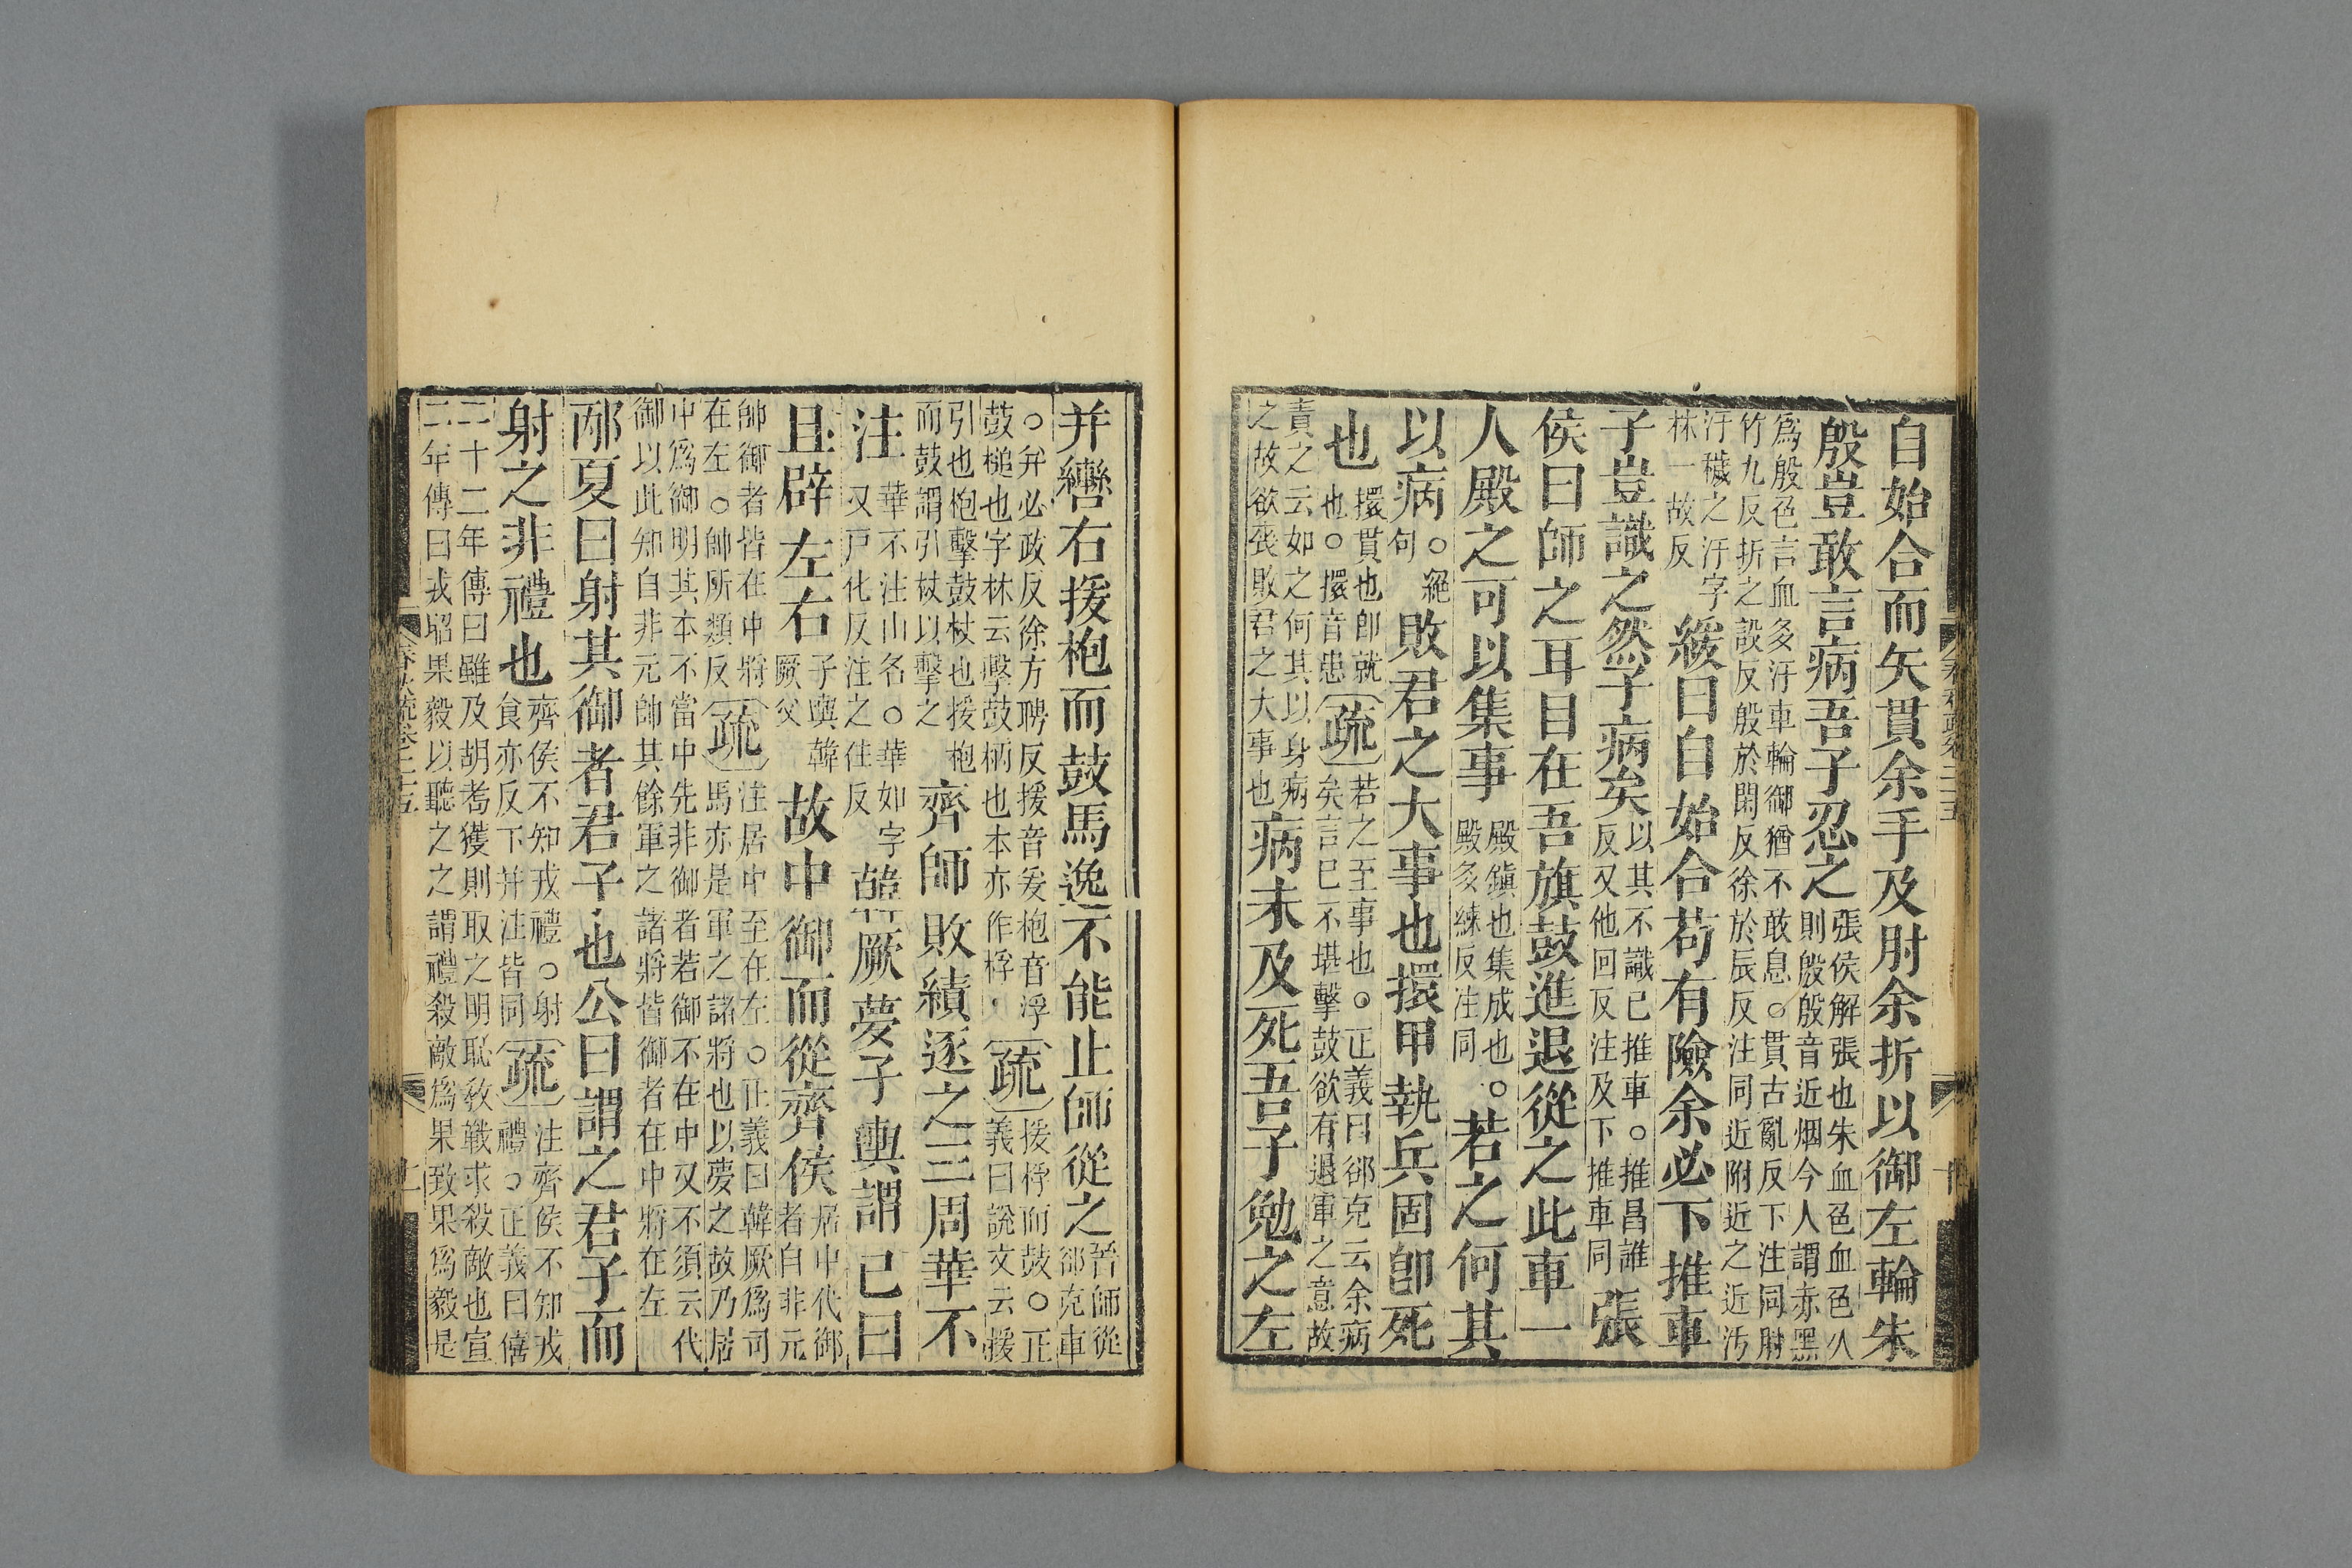 自始合而矢貫余手及肘余折以御左輪朱
殷豈敢言病吾子忍之
張侯解張也朱血色血色久
則殷殷音近烟今人謂赤黑
爲殷色言血多汙車輪御猶不敢息○貫古亂反下注同肘
竹九反折之設反殷於閑反徐於辰反注同近附近之近汚
汙穢之汙字
秣一故反
緩曰自始合苟有險余必下推車
子豈識之然子病矣
以其不識已推車○推昌誰
反又他回反注及下推車同
張
侯曰師之耳目在吾旗鼓進退從之此車一
人殿之可以集事
殿鎮也集成也○
殿多練反注同
若之何其
以病
○絕
句
敗君之大事也擐甲執兵固卽死
也
擐貫也卽就
也○擐音患
疏
若之至事也○正義曰郤克云余病
矣言已不堪擊鼓欲有退軍之意故
責之云如之何其以身病
之故欲喪敗君之大事也
病未及死吾子勉之左
并轡右援枹而鼓馬逸不能止師從之
晉師從
郤克車
○并必政反徐方聘反援音爰枹音浮
鼓槌也字林云擊鼓柄也本亦作桴
疏
援桴而鼓○正
義曰說文云援
引也枹擊鼓杖也援枹
而鼓謂引杖以擊之
齊師敗績逐之三周華不
注
華不注山名○華如字
又戸化反注之住反
韓厥夢子輿謂已曰
且辟左右
子輿韓
厥父
故中御而從齊侯
居中代御
者自非元
帥御者皆在中將
在左○帥所類反
疏
注居中至在左○正義曰韓厥爲司
馬亦是軍之諸將也以夢之故乃居
中爲御明其本不當中先非御者若御不在中又不須云代
御以此知自非元帥其餘軍之諸將皆御者在中將在左
邴夏曰射其御者君子也公曰謂之君子而
射之非禮也
齊侯不知戎禮○射
食亦反下并注皆同
疏
注齊侯不知戎
禮○正義曰僖
二十二年傳曰雖及胡耇獲則取之明恥教戰求殺敵也宣
二年傳曰戎昭果毅以聽之之謂禮殺敵爲果致果爲毅是